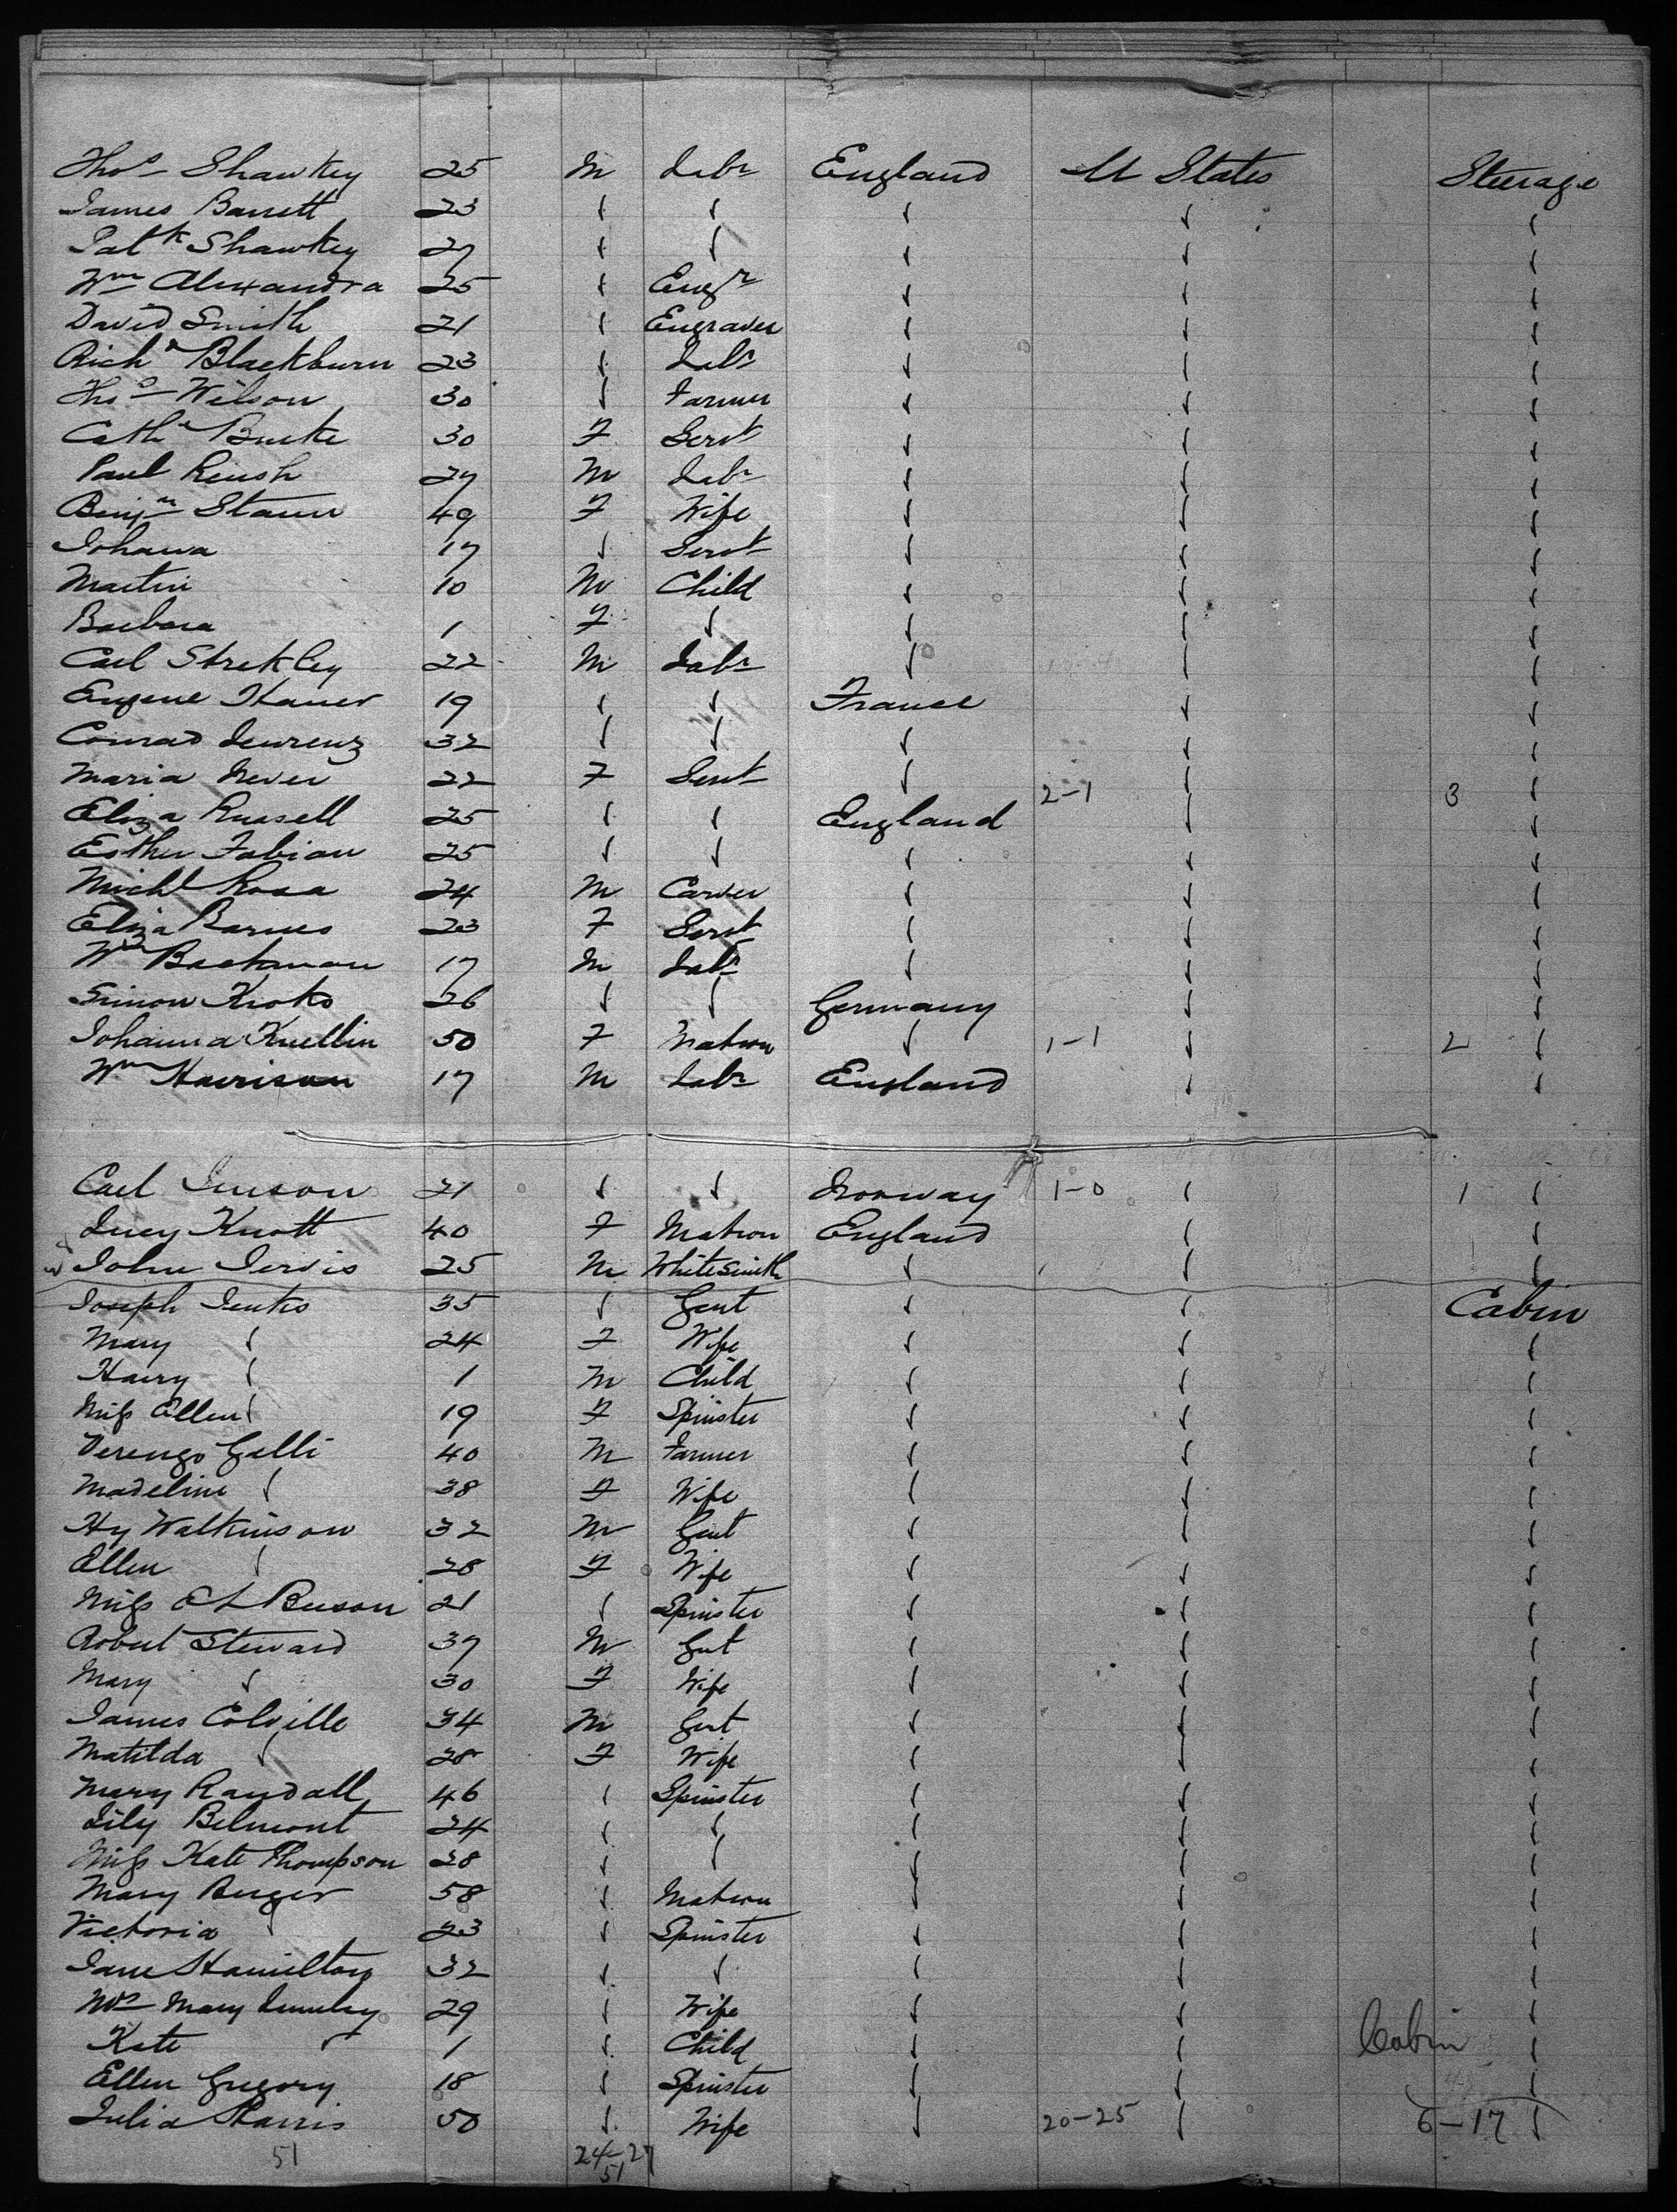 Thos Shawkey 25 M Labr England U States Steerage
James Barrett 23 " " " " "
Patk Shawkey 27 " " " " "
Wm Alexandra 25 " Engr " " "
David Smith 21 " Engraver " " "
Richd Blackburn 23 " Labr " " "
Thos Wilson 30 " Farmer " " "
Cathe Burke 30 F Servt " " "
Paul Reush 27 M Labr " " "
Benjn Staun 49 F Wife " " "
Johana 17 " Servt " " "
Martin 10 M Child " " "
Barbara 1 F " " " "
Carl Strekley 22 M Labr " " "
Eugene 19 " " France " "
Conrad 32 " " " " "
Maria Never 22 F Servt " 2-1 " 3 "
Eliza Russell 25 " " England " "
Esther Fabian 25 " " " " "
Michl Rosa 24 M Carver " " "
Eliza Barnes 23 F Servt " " "
Wm Backman 17 M Labr " " "
Simon Kroks 26 " " Germany " "
Johanna Knellin 50 F Matron " 1-1 " 2 "
Wm Harrison 17 M Labr England " "
Carl Jenson 21 " " Norway 1-0 " 1 "
Lucy Knott 40 F Matron England " "
John Jervis 25 M Whitesmith " " "
Joseph Jenks 35 " Gent " " Cabin
Mary " 24 F Wife " " "
Harry " 1 M Child " " "
Miss Ellen " 19 F Spinster " " "
Verengo Galli 40 M Farmer " " "
Madeline " 38 F Wife " " "
Hy Watkinson 32 M Gent " " "
Ellen " 28 F Wife " " "
Miss E L Beeson 21 " Spinster " " "
Robert Steward 37 M Gent " " "
Mary " 30 F Wife " " "
James Colville 34 M Gent " " "
Matilda " 28 F Wife " " "
Mary Randall 46 " Spinster " " "
Lily Belmont 24 " " " " "
Miss Kate Thompson 28 " " " " "
Mary Berger 58 " Matron " " "
Victoria " 23 " Spinster " " "
Jane Hamilton 32 " " " " "
Mrs Mary Lumley 29 " Wife " " "
Kate " 1 " Child " " Cabin "
Ellen Gregory 18 " Spinster " " "
Julia Harris 50 " Wife " 20-25 " 6-17 "
51 24-27
51